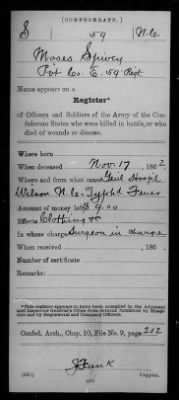 (CONFEDERATE.)
S 59 N.C.
Moses Spivey
Pvt Co. E. 59 Regt
Name appears on a
Register*
of Officers and Soldiers of the Army of the Confederate
States who were killed in battle, or who
died of wounds or disease.
Where born
When deceased Nov. 17, 1862
Where and from what cause Genl Hospl
Wilson N.C. Typhd Fever
Amount of money left $ 9.00
Effects Clothing &c
In whose charge Surgeon in charge
When received , 186
Number of certificate
Remarks:
*This register appears to have been compiled in the Adjutant
and Inspector General's Office from returns furnished by Hospitals
and by Regimental and Company Officers.
Confed. Arch., Chap. 10, File No. 9, page 212
J Funk
Copyist.